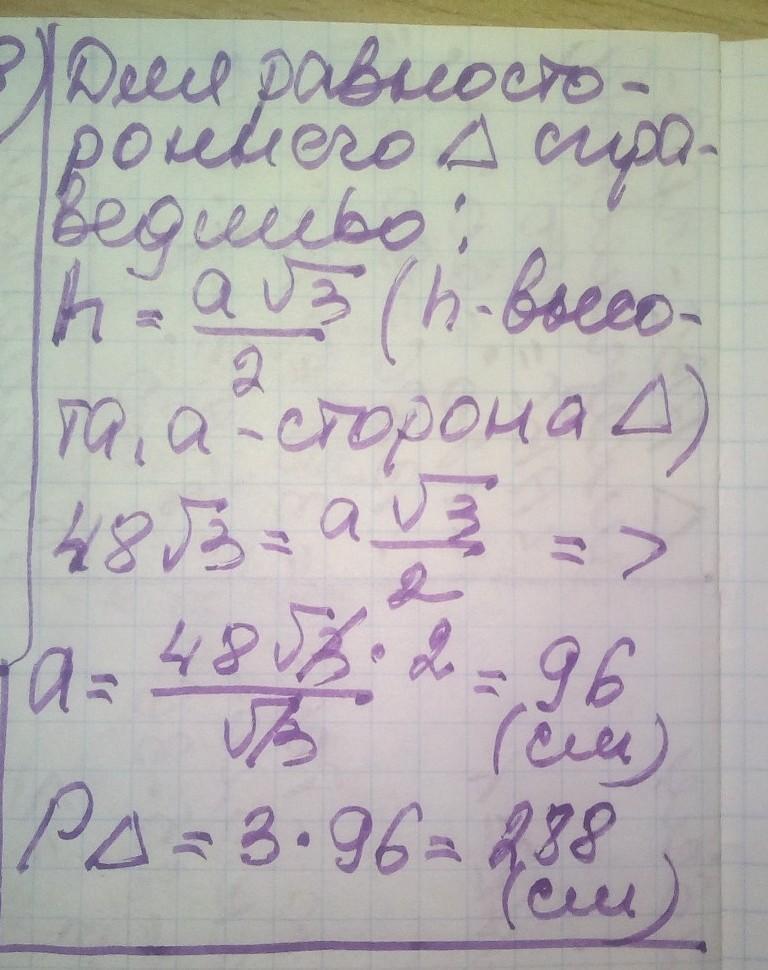 8) Для равносто-
роннего Δ спра-
ведливо:
h = a√3/2 (h - высо-
та, a - сторона Δ)
48√3 = a√3/2 =>
a = 48√3 · 2/√3 = 96
(см)
PΔ = 3 · 96 = 288
(см)